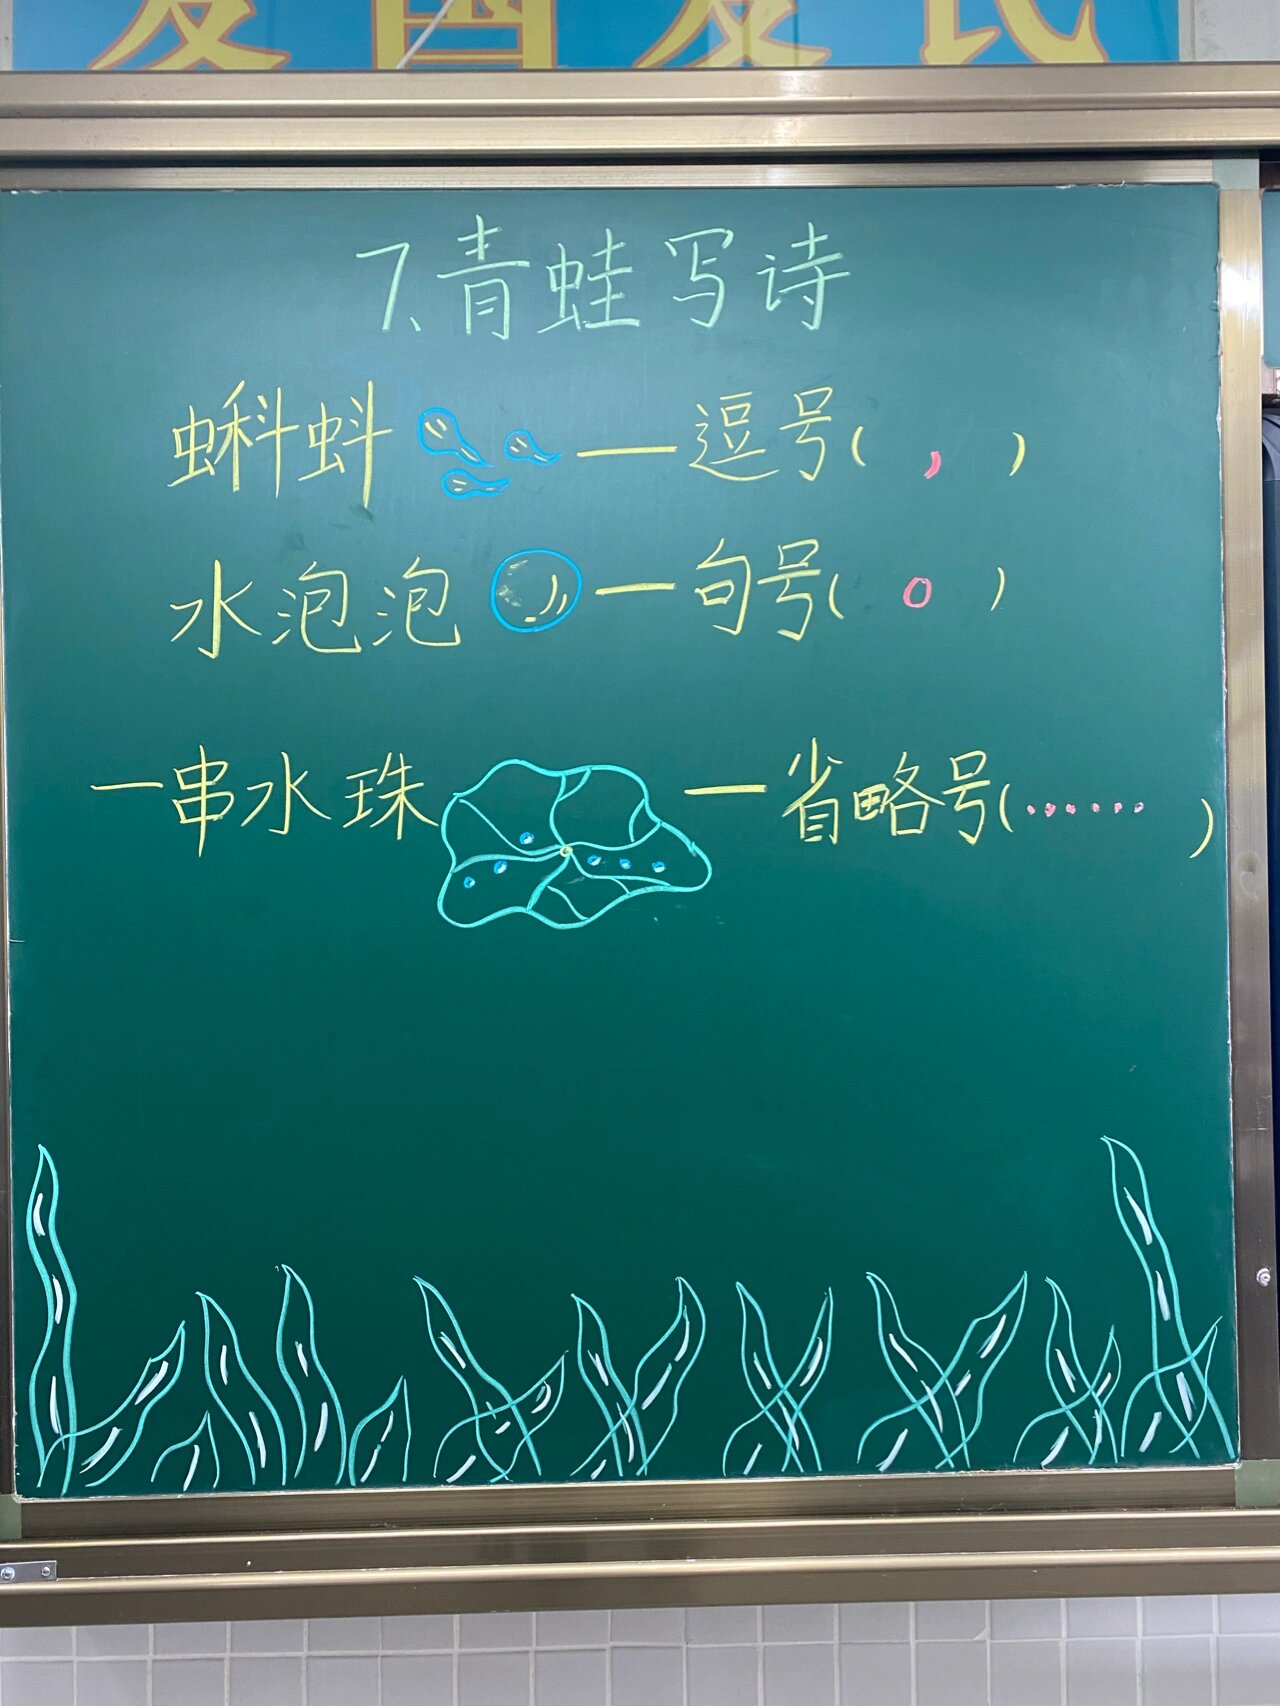 爱国爱民
7、青蛙写诗
蝌蚪—逗号( , )
水泡泡—句号( 。 )
一串水珠—省略号(…… )